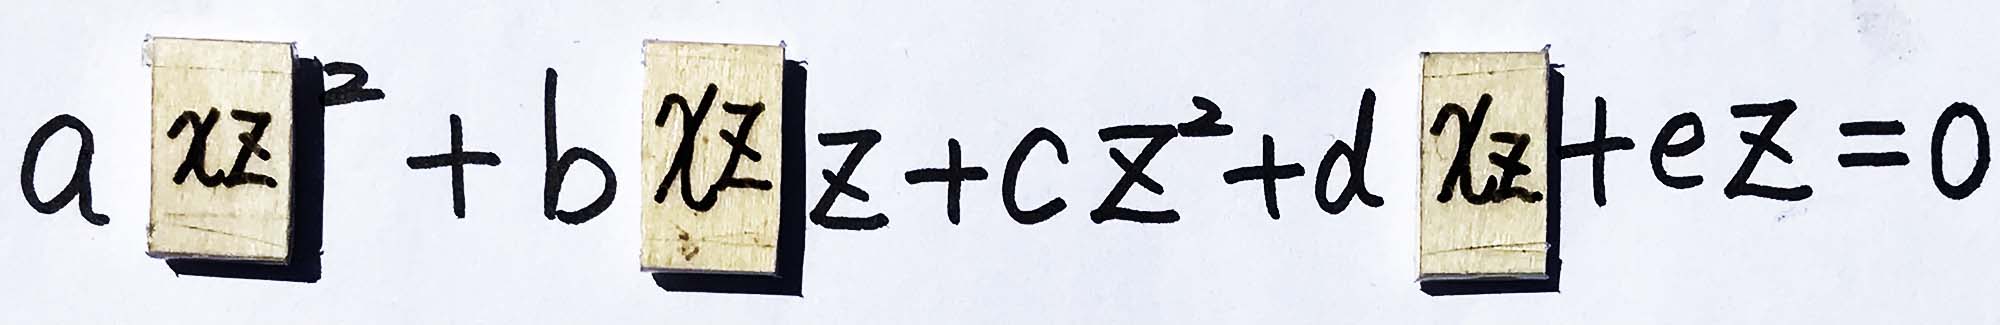 a xz² + b xz z + cz² + d xz + ez = 0